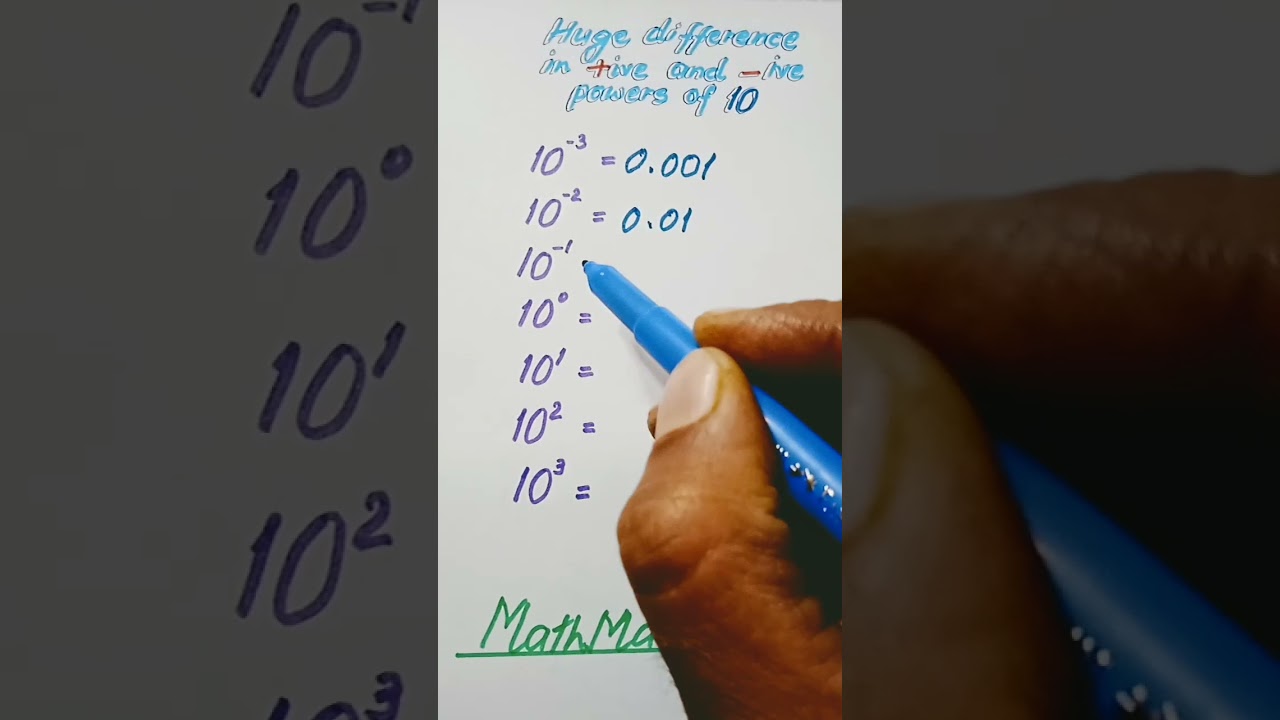 Huge difference
in +ive and -ive
powers of 10
10⁻³ = 0.001
10⁻² = 0.01
10⁻¹
10⁰ =
10¹ =
10² =
10³ =
10⁻¹
10⁰
10¹
10²
10³